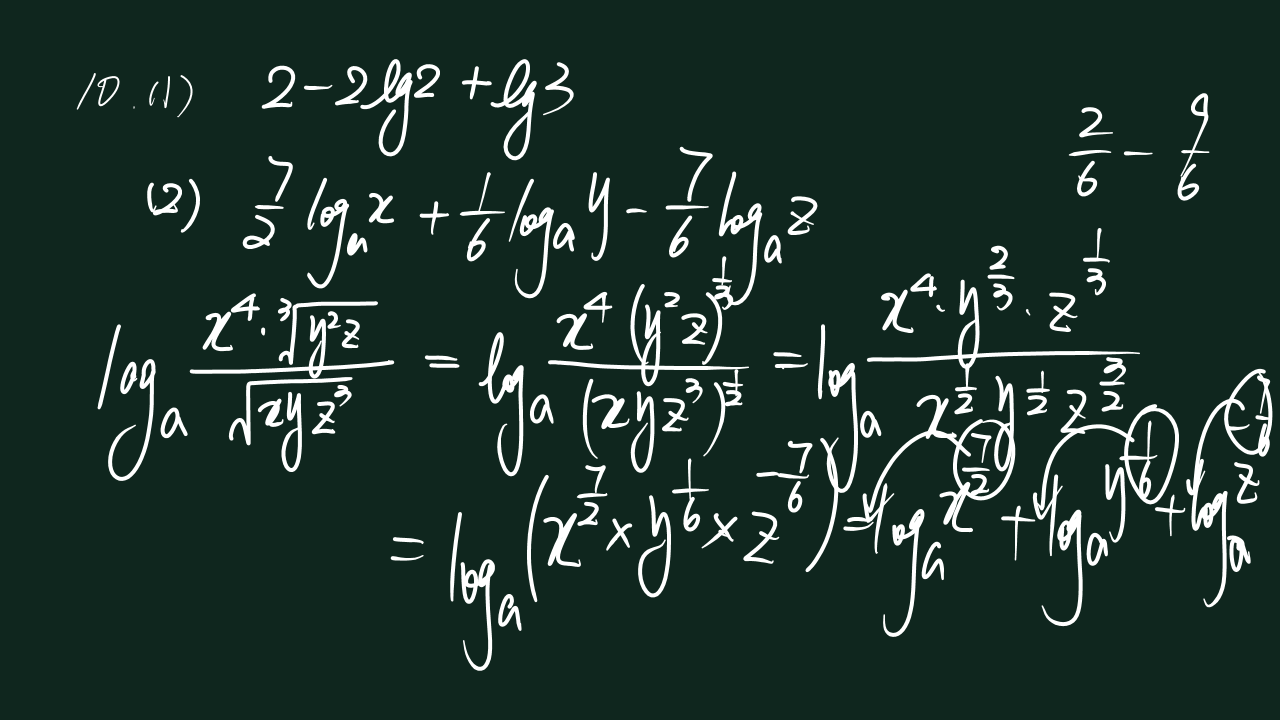 10.(1) 2-2lg2+lg3
2/6 - 9/6
(2) 7/2 logₐx + 1/6 logₐy - 7/6 logₐz
logₐ (x⁴·∛(y²z))/(√(xyz³)) = logₐ (x⁴(y²z)^(1/3))/((xyz³)^(1/2)) = logₐ (x⁴·y^(2/3)·z^(1/3))/(x^(1/2) y^(1/2) z^(3/2))
= logₐ(x^(7/2) × y^(1/6) × z^(-7/6)) = logₐx^(7/2) + logₐy^(1/6) + logₐz^(-7/6)